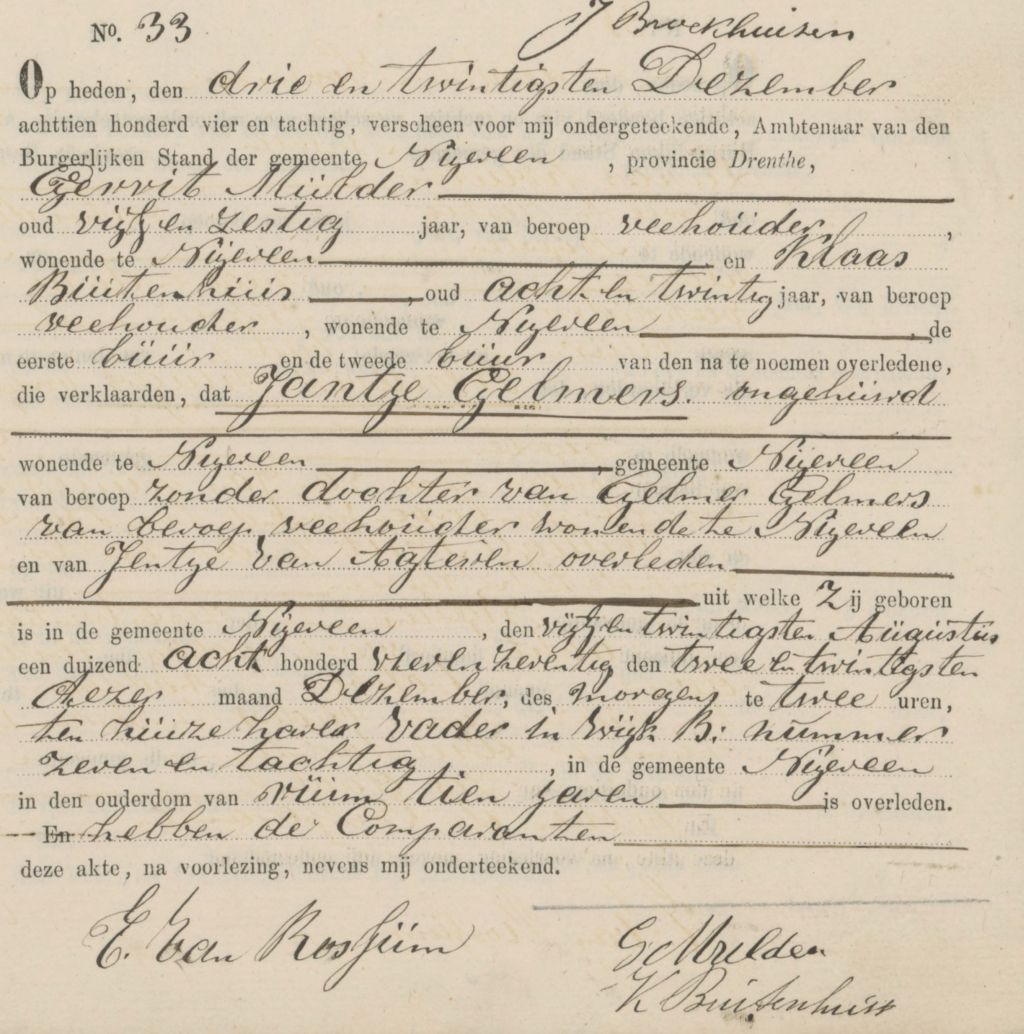 J Broekhuisen
No. 33
Op heden, den drie en twintigsten Dezember
achttien honderd vier en tachtig, verscheen voor mij ondergeteekende, Ambtenaar van den
Burgerlijken Stand der gemeente Nijeveen, provincie Drenthe,
Gerrit Mulder
oud vijf en zestig jaar, van beroep veehouder,
wonende te Nijeveen en Klaas
Buitenhuis, oud acht en twintig jaar, van beroep
veehouder, wonende te Nijeveen, de
eerste buur en de tweede buur van den na te noemen overledene,
die verklaarden, dat Jantje Gelmers. ongehuwd
wonende te Nijeveen, gemeente Nijeveen
van beroep zonder dochter van Gelmer Gelmers
van beroep veehouder wonende te Nijeveen
en van Jentje van Agteren overleden
uit welke Zij geboren
is in de gemeente Nijeveen, den vijf en twintigsten Augustus
een duizend acht honderd vier en zeventig den twee en twintigsten
dezer maand Dezember, des morgens te twee uren,
ten huize harer vader in Wijk B: nummer
zeven en tachtig, in de gemeente Nijeveen
in den ouderdom van ruim tien jaren is overleden.
En hebben de Comparanten
deze akte, na voorlezing, nevens mij onderteekend.
E. Van Rossum
G Mulder
K Buitenhuis